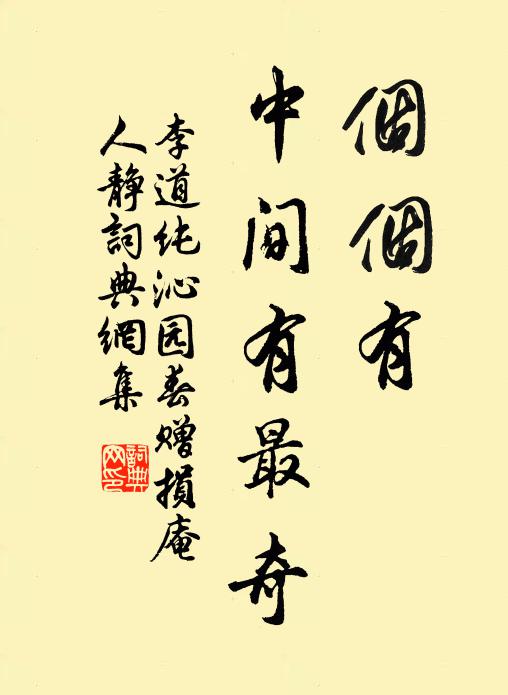 個個有
中间有最奇
李道纯沁园春赠損庵
人静詞典網集
詞典
网印